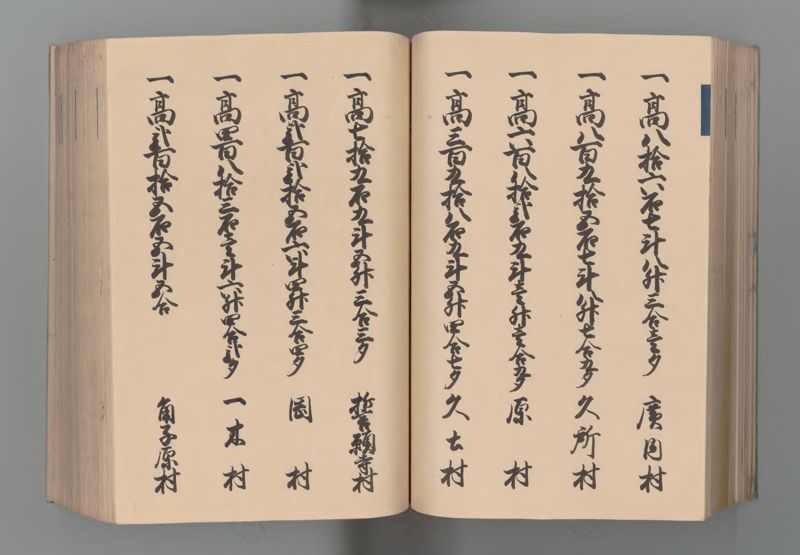 一高八拾六石七斗八升三合壱夕 廣岡村
一高八百五拾五石七斗八升七合五夕 久所村
一高六百八拾弐石九斗壱升壱合五夕 原村
一高三百五拾八石九斗五升四合七夕 久土村
一高七拾五石九斗五升三合三夕 誓願寺村
一高弐百弐拾五石六斗四升三合四夕 岡村
一高四百八拾三石壱斗六升四合弐夕 一木村
一高弐百拾五石五斗五合 角子原村